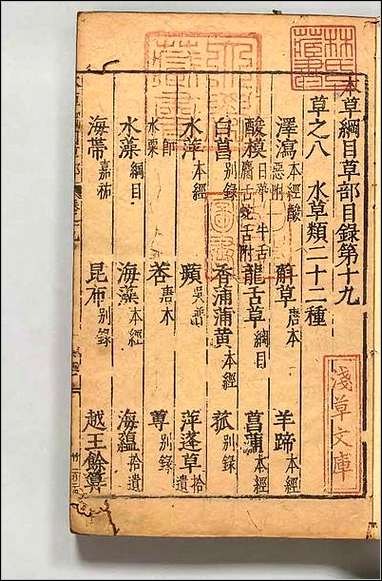 本草綱目草部目錄第十九
草之八 水草類二十二種
澤瀉本經 酸惡附 蔛草唐本 羊蹄本經
酸模日華 牛舌 蛇舌附 龍舌草綱目 菖蒲本經
白菖別錄 香蒲蒲黃本經 菰別錄
水萍本經 蘋吳普 萍蓬草拾遺
水粟 莕唐本 蓴別錄
水藻綱目 海藻本經 海蘊拾遺
海帶嘉祐 昆布別錄 越王餘算
林氏藏書
淺草文庫